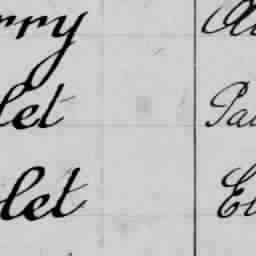 rry
let Pa
let El